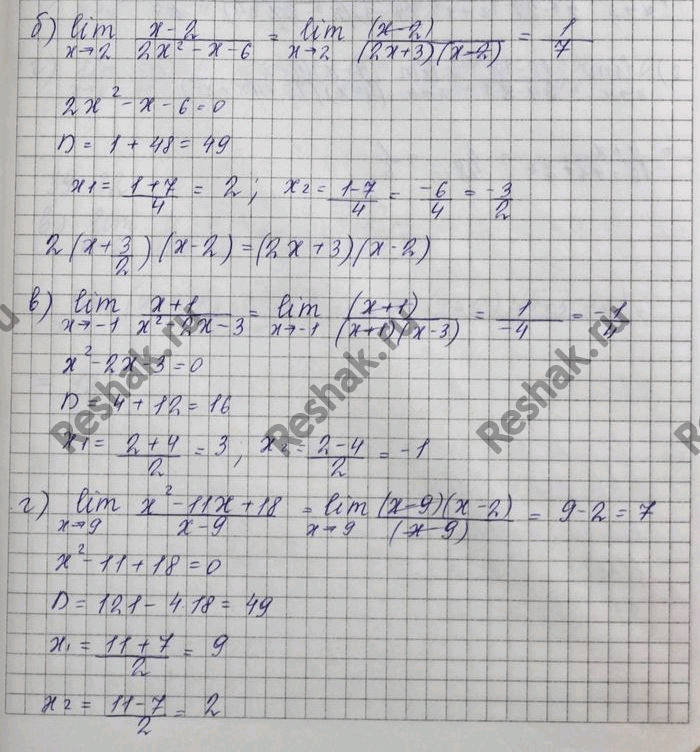 б) lim x→2 (x-2)/(2x²-x-6) = lim x→2 (x-2)/((2x+3)(x-2)) = 1/7
2x²-x-6=0
D=1+48=49
x1=(1+7)/4=2; x2=(1-7)/4=-6/4=-3/2
2(x+3/2)(x-2)=(2x+3)(x-2)
в) lim x→-1 (x+1)/(x²-2x-3) = lim x→-1 (x+1)/((x+1)(x-3)) = 1/-4 = -1/4
x²-2x-3=0
D=4+12=16
x1=(2+4)/2=3; x2=(2-4)/2=-1
г) lim x→9 (x²-11x+18)/(x-9) = lim x→9 (x-9)(x-2)/(x-9) = 9-2=7
x²-11+18=0
D=121-4·18=49
x1=(11+7)/2=9
x2=(11-7)/2=2
Reshak.ru
Reshak.ru
Reshak.ru